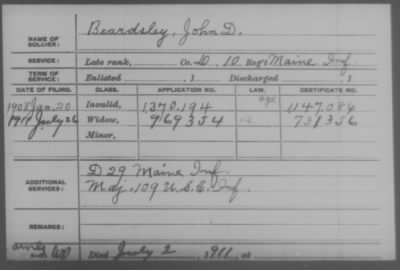 NAME OF SOLDIER: Beardsley, John D.
SERVICE: Late rank, Co. D, 10 Reg't Maine Inf
TERM OF SERVICE: Enlisted , 1 Discharged , 1
DATE OF FILING. CLASS. APPLICATION NO. LAW. CERTIFICATE NO.
1908 Jan. 20 Invalid, 1370.194 age 1147.086
1911 July 26 Widow, 969354 a 731356
Minor,
ADDITIONAL SERVICES: D 29 Maine Inf.
Maj. 109 U.S.C. Inf.
REMARKS:
Died July 2 1911, at